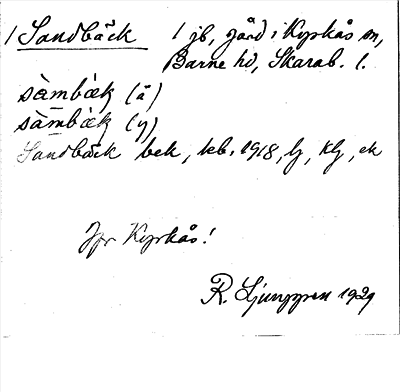 1 Sandbäck 1 jb, gård i Kyrkås sn,
Barne hd, Skarab. l.
sàmbæk (ä)
sàmbæk (y)
Sandbäck bek, kb. 1918, lj, klj, ek
Jfr Kyrkås!
R. Ljunggren 1929